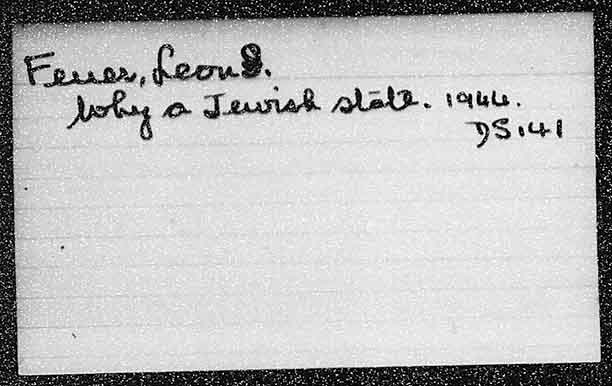 Feuer, Leon I.
Why a Jewish state. 1944.
DS141